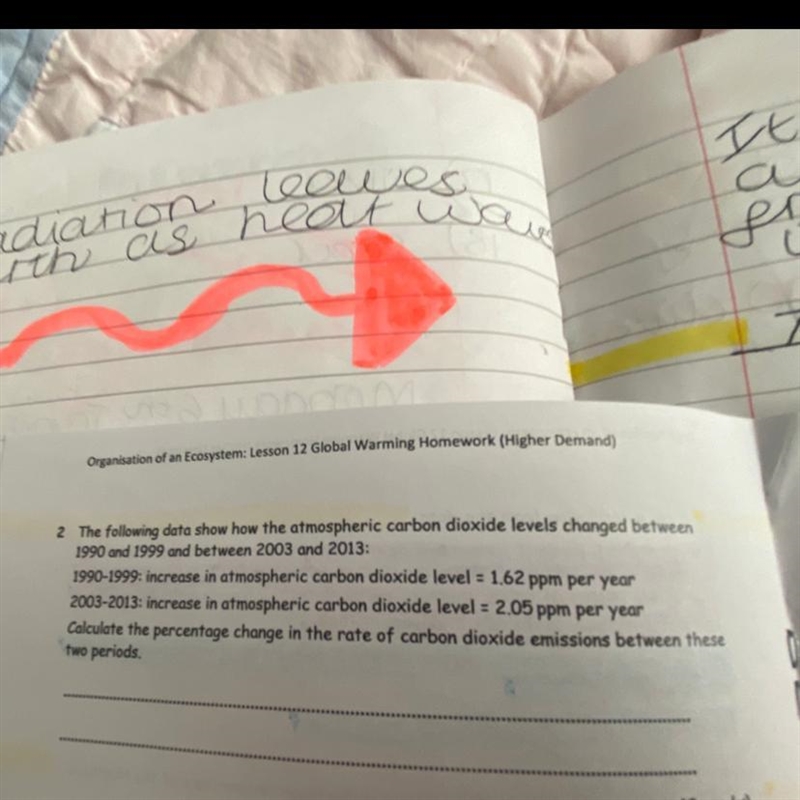 adiation leaves
rth as heat wave
It
a
Organisation of an Ecosystem: Lesson 12 Global Warming Homework (Higher Demand)
2 The following data show how the atmospheric carbon dioxide levels changed between
1990 and 1999 and between 2003 and 2013:
1990-1999: increase in atmospheric carbon dioxide level = 1.62 ppm per year
2003-2013: increase in atmospheric carbon dioxide level = 2.05 ppm per year
Calculate the percentage change in the rate of carbon dioxide emissions between these
two periods.